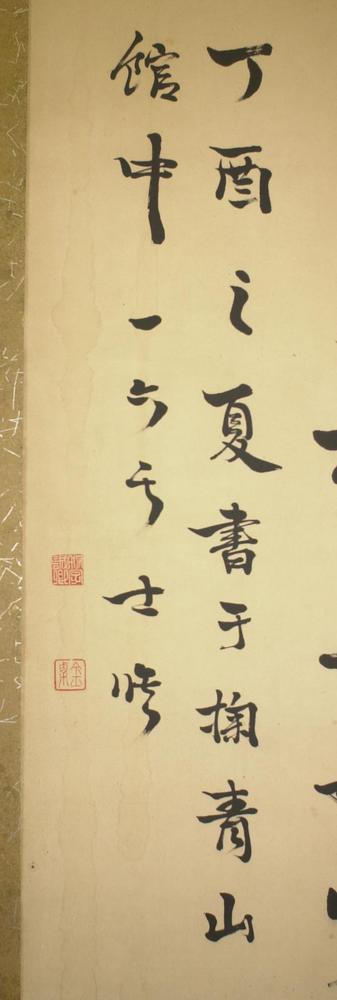 丁酉之夏書于掬青山
館中一六居士脩